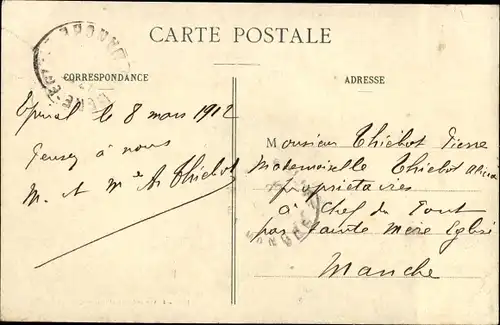 CARTE POSTALE
CORRESPONDANCE
ADRESSE
Epinal le 8 mars 1912
Pensez à nous
M. et Me A. Thiébot
Monsieur Thiébot Pierre
Mademoiselle Thiébot
propriétaires
à Chef du Pont
par Sainte Mère Eglise
Manche